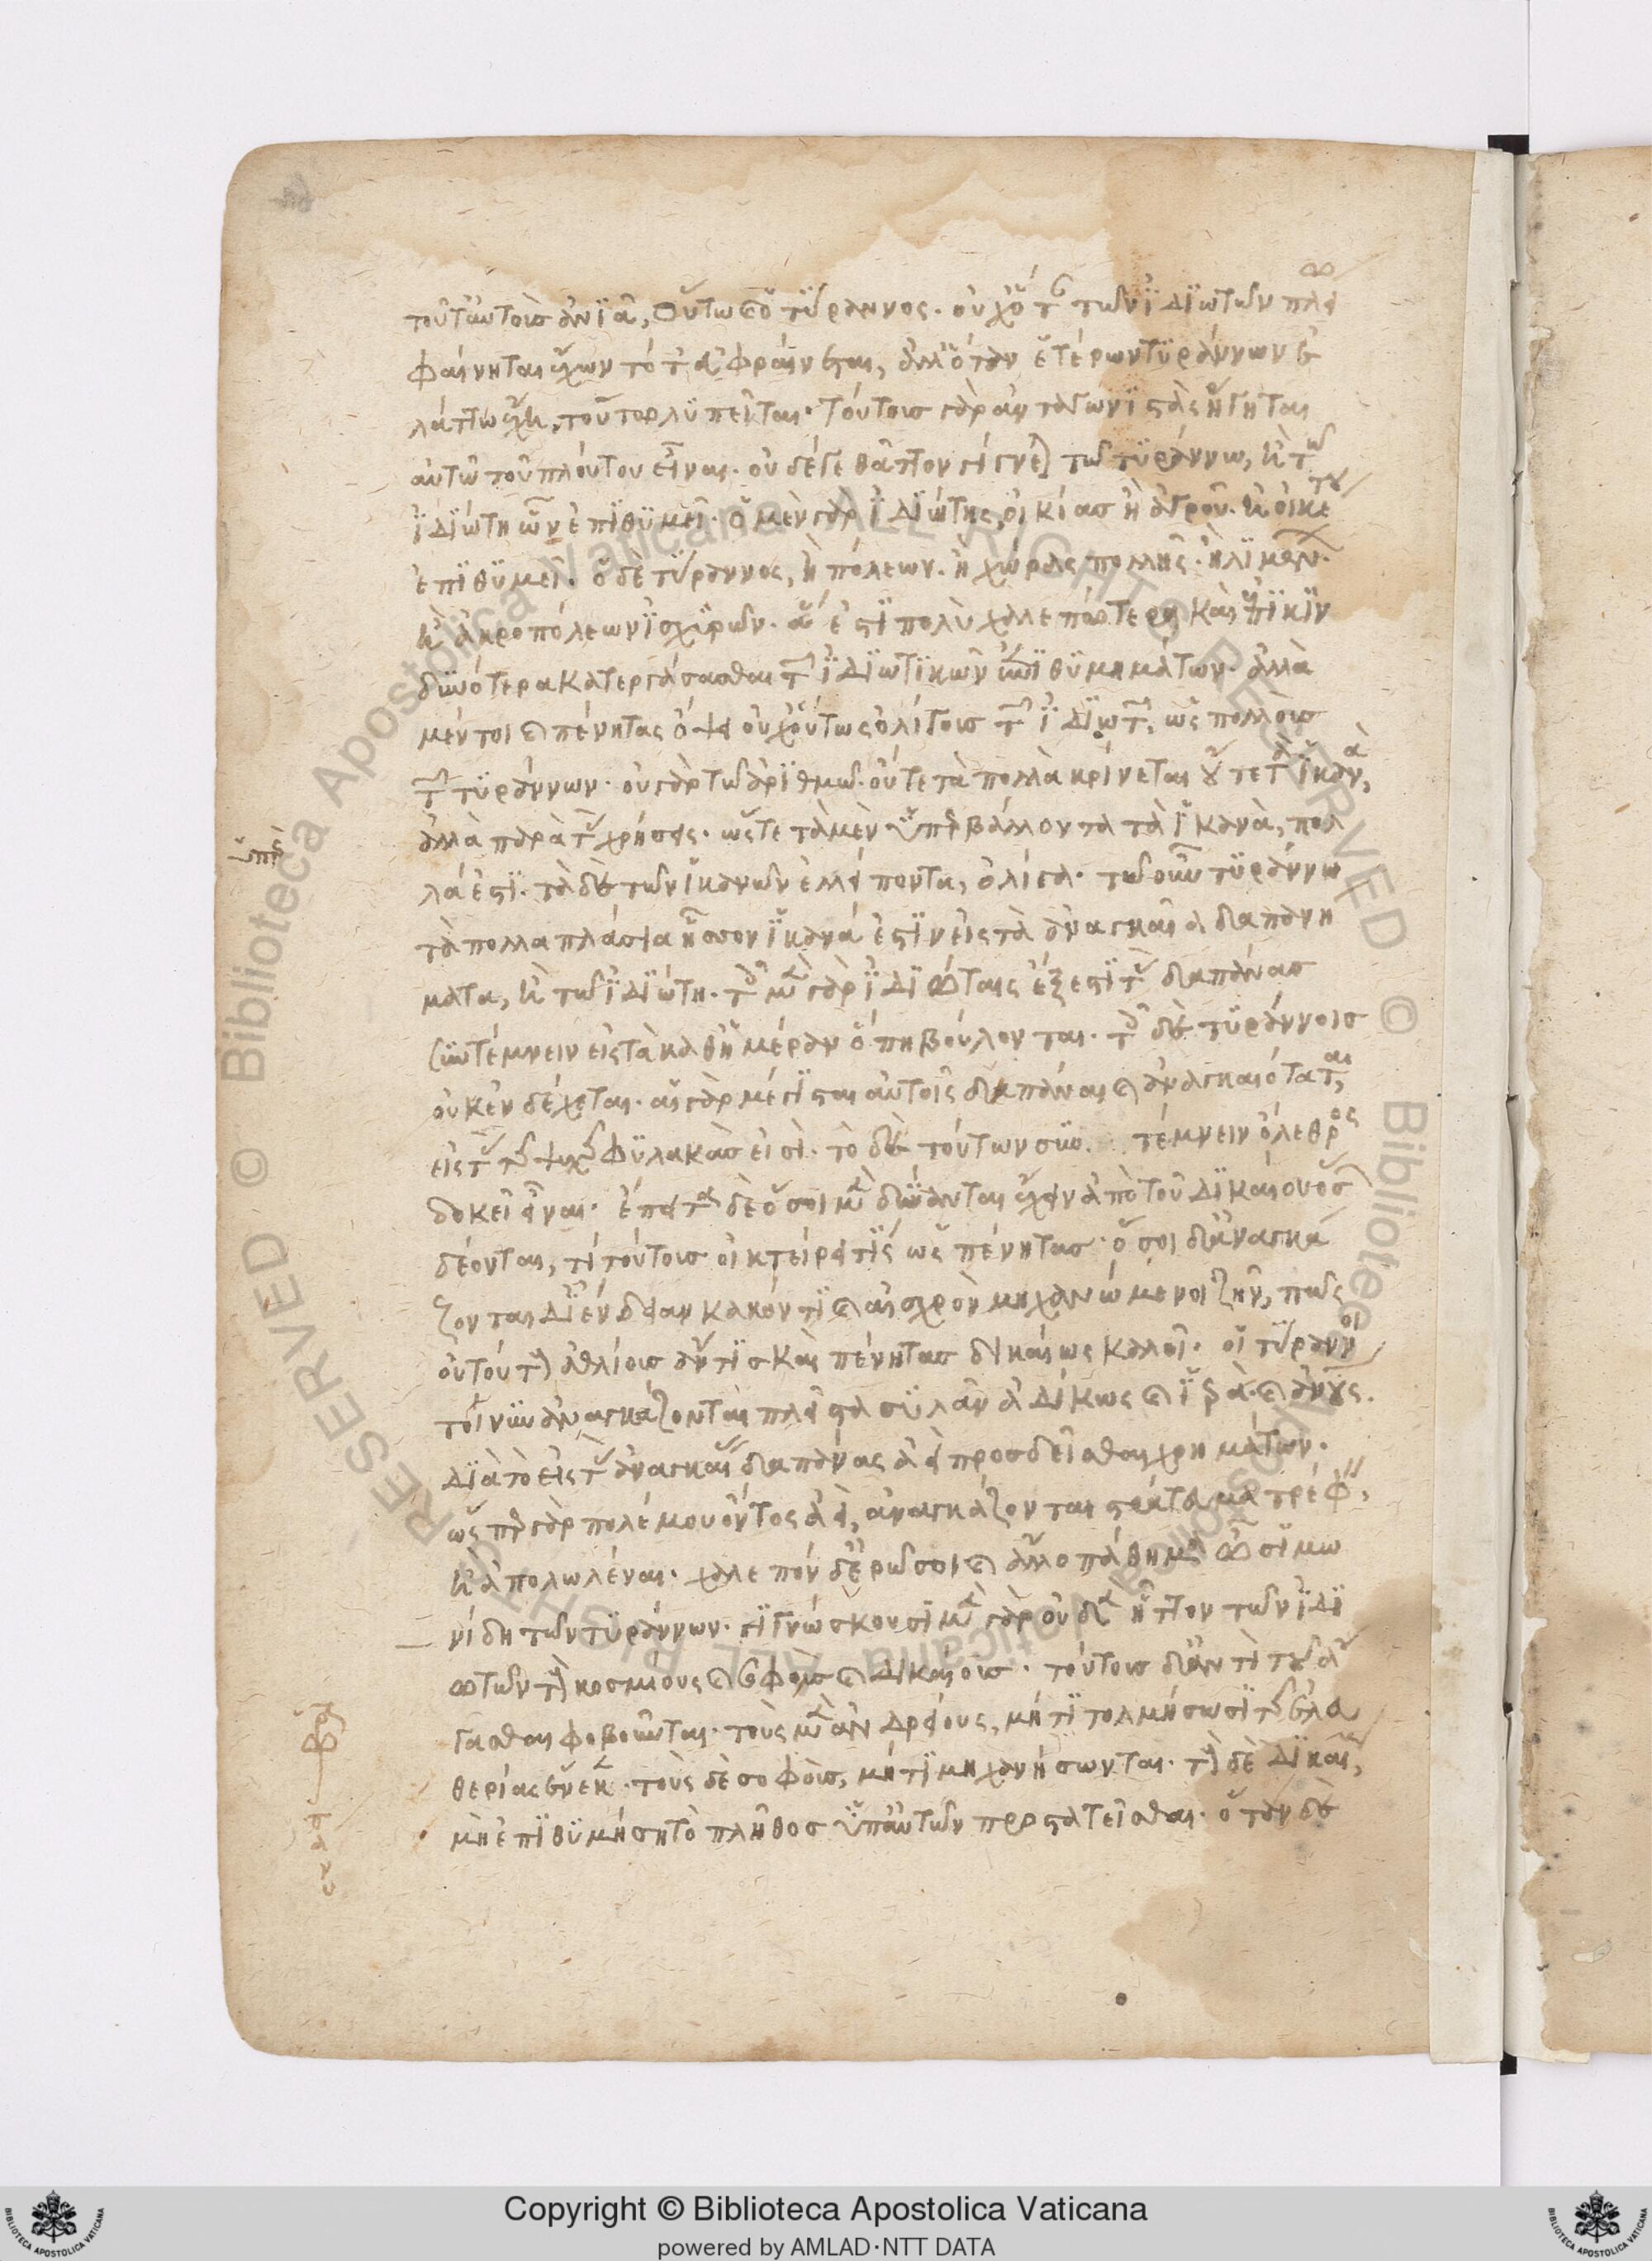 τοῦτ' αὐτοὺς ἀνιᾷ, οὕτω καὶ ὁ τύραννος. οὐχ ὅτε τῶν ἰδιωτῶν πλεί
φαίνηται ἔχων τότ' εὐφραίνεται, ἀλλ' ὅταν ἑτέρων τυράννων ἐ
λάττω ἔχη, τούτοις λυπεῖται. τούτους γὰρ ἀνταγωνιστὰς ἡγεῖται
αὐτῷ τοῦ πλούτου εἶναι. οὐδέ γε θᾶττον γίγνεται τῷ τυράννῳ, ἢ τῷ
ἰδιώτη ὧν ἐπιθυμεῖ. ὁ μὲν γὰρ ἰδιώτης, οἰκίας ἢ ἀγροῦ. ἢ οἰκέτου
ἐπιθυμεῖ. ὁ δὲ τύραννος, ἢ πόλεων. ἢ χώρας πολλῆς. ἢ λιμένων.
ἢ ἀκροπόλεων ἰσχυρῶν. ἅ ἐστι πολὺ χαλεπώτερα καὶ ἐπικιν
δυνότερα κατεργάσασθαι τῶν ἰδιωτικῶν ἐπιθυμημάτων. ἀλλὰ
μέντοι καὶ πένητας ὄψει οὐχ οὕτως ὀλίγους τῶν ἰδιωτῶν, ὡς πολλοὺς
τῶν τυράννων. οὐ γὰρ τῷ ἀριθμῷ οὔτε τὰ πολλὰ κρίνεται οὔτε τὰ ἱκανὰ,
ἀλλὰ πρὸς τὰς χρήσεις. ὥστε τὰ μὲν ὑπερβάλλοντα τὰ ἱκανὰ, πολ
ὑπὲρ
λά ἐστι. τὰ δὲ τῶν ἱκανῶν ἐλλείποντα, ὀλίγα. τῷ οὖν τυράννῳ
τὰ πολλαπλάσια ἧσσον ἱκανά ἐστιν εἰς τὰ ἀναγκαῖα δαπανή
ματα, ἢ τῷ ἰδιώτη. τοῖς μὲν γὰρ ἰδιώταις ἔξεστι τὰς δαπάνας
συντέμνειν εἰς τὰ καθ' ἡμέραν ὅπη βούλονται. τοῖς δὲ τυράννοις
οὐκ ἐνδέχεται. αἱ γὰρ μέγισται αὐτοῖς δαπάναι καὶ ἀναγκαιόταται,
εἰς τὰς τῆς ψυχῆς φυλακὰς εἰσὶ. τὸ δὲ τούτων συν τέμνειν ὄλεθρος
δοκεῖ εἶναι. ἔπειτα δὲ ὅσοι μὲν δύνανται ἔχειν ἀπὸ τοῦ δικαίου ὅσων
δέονται, τί τούτους οἰκτείροι τίς ὡς πένητας. ὅσοι δ' ἀναγκά
ζονται δι' ἔνδειαν κακόν τι καὶ αἰσχρὸν μηχανώμενοι ζῆν, πῶς
οὐ τούτους ἀθλίους ἄν τις καὶ πένητας δικαίως καλοῖ. οἱ τύραννοι
τοίνυν ἀναγκάζονται πλεῖστα συλᾶν ἀδίκως καὶ ἱερὰ. καὶ ἀνθρώπους.
διὰ τὸ εἰς τὰς ἀναγκαίας δαπάνας ἀεὶ προσδεῖσθαι χρημάτων.
ὥσπερ γὰρ πολέμου ὄντος ἀεὶ, ἀναγκάζονται στράτευμα τρέφειν,
ἢ ἀπολωλέναι. χαλεπὸν δ' ἐρῶ σοι καὶ ἄλλο πάθημα ὦ σιμω
νίδη τῶν τυράννων. γιγνώσκουσι μὲν γὰρ οὐδὲν ἧττον τῶν ἰδι
ωτῶν τοὺς κοσμίους καὶ σοφοὺς καὶ δικαίους. τούτους δ' ἀντὶ τοῦ ἄ
γασθαι φοβοῦνται. τοὺς μὲν ἀνδρείους, μή τι τολμήσωσι τῆς ἐλευ
θερίας ἕνεκεν. τοὺς δὲ σοφοὺς, μή τι μηχανήσωνται. τοὺς δὲ δικαίους,
μὴ ἐπιθυμήση τὸ πλῆθος ὑπ' αὐτῶν προστατεῖσθαι. ὅταν δὲ
Copyright © Biblioteca Apostolica Vaticana
powered by AMLAD·NTT DATA